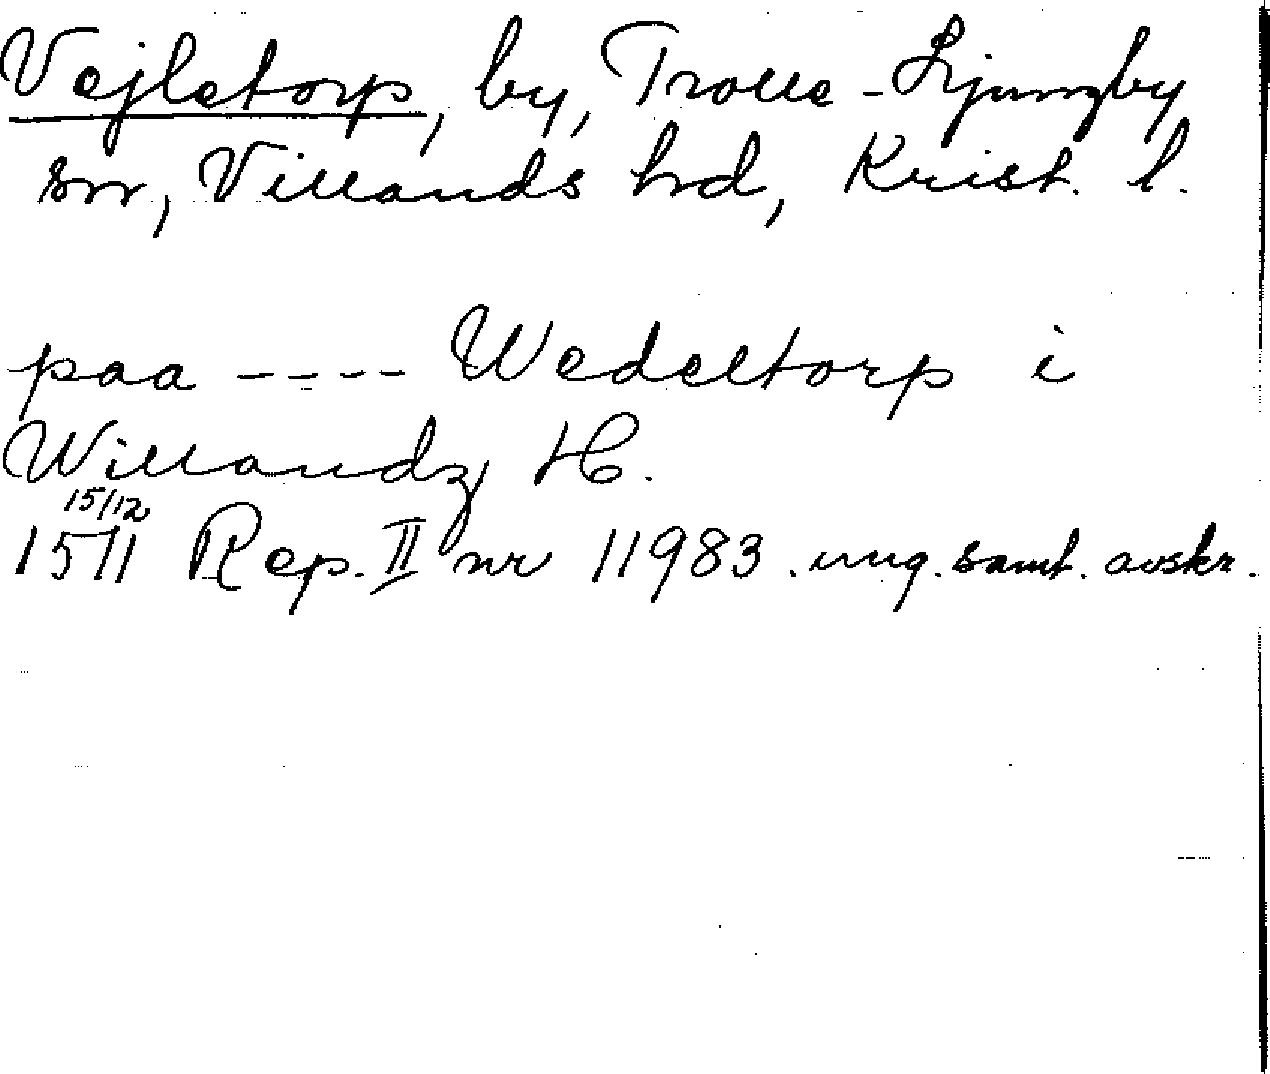 Vejletorp, by, Trolle-Ljungby
sn, Villands hd, Krist. l.
paa ---- Wedeltorp i
Willandz H.
15/12
1511 Rep. II nr 11983. ung. samt. avskr.